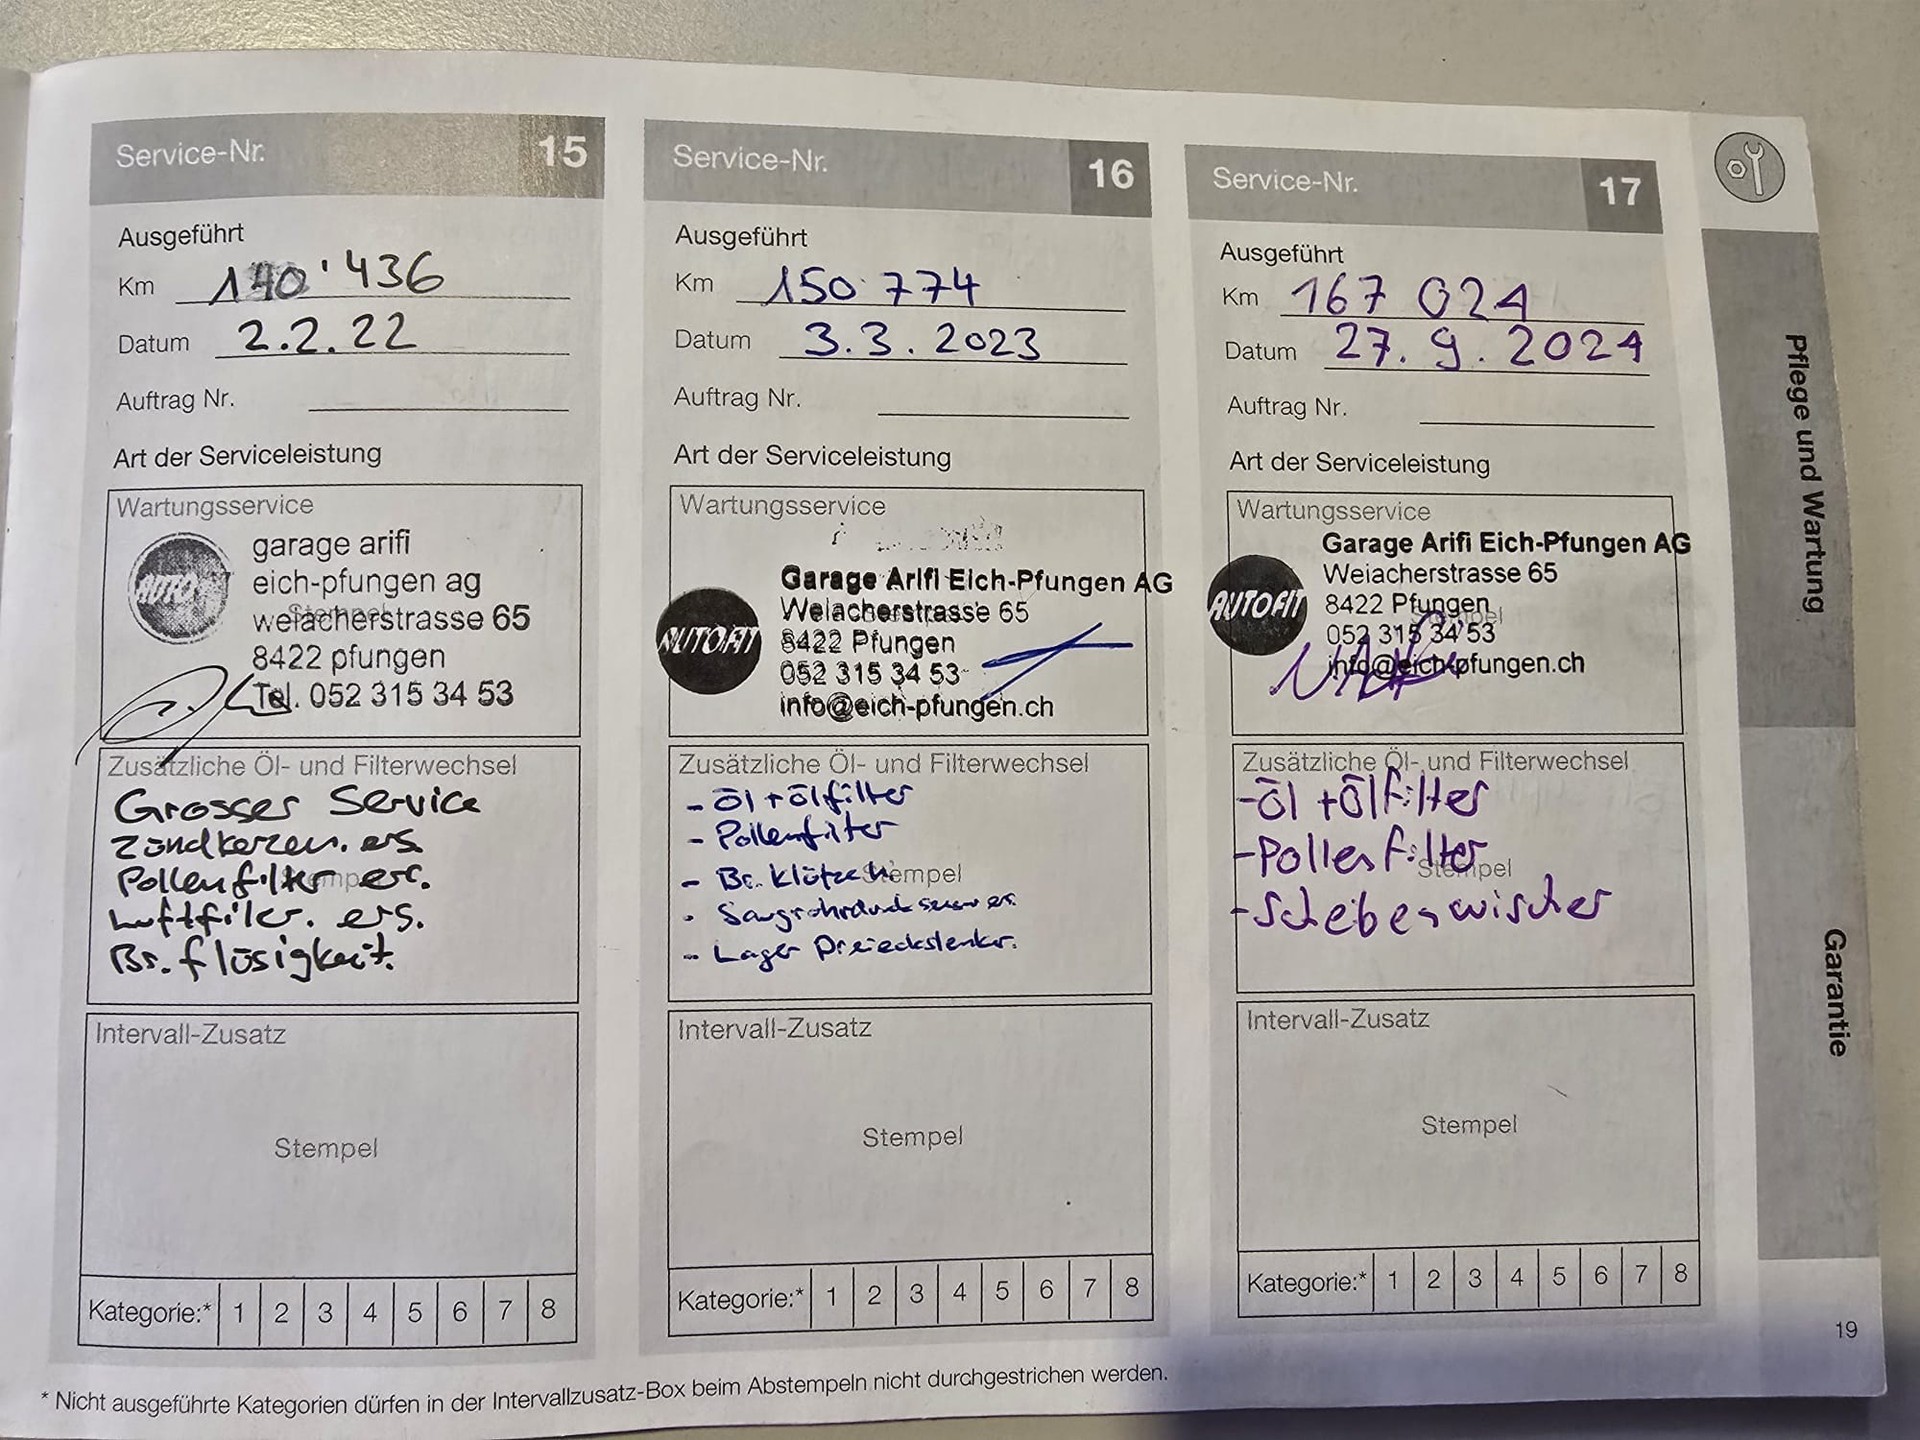 Service-Nr. 15
Ausgeführt
Km 140'436
Datum 2.2.22
Auftrag Nr.
Art der Serviceleistung
Wartungsservice
AUTOFIT
garage arifi
eich-pfungen ag
Stempel
weiacherstrasse 65
8422 pfungen
Tel. 052 315 34 53
Zusätzliche Öl- und Filterwechsel
Grosser Service
Zündkerzen. ers.
Pollenfilter ers.
Stempel
Luftfilter. ers.
Br. flüsigkeit.
Intervall-Zusatz
Stempel
Kategorie:* 1 2 3 4 5 6 7 8
Service-Nr. 16
Ausgeführt
Km 150 774
Datum 3.3.2023
Auftrag Nr.
Art der Serviceleistung
Wartungsservice
AUTOFIT
Garage Arifi Eich-Pfungen AG
Weiacherstrasse 65
8422 Pfungen
052 315 34 53
info@eich-pfungen.ch
Zusätzliche Öl- und Filterwechsel
- Öl + Ölfilter
- Pollenfilter
- Br. Klötze
Stempel
- Saugrohrdruck
- Lager Dreieckslenker.
Intervall-Zusatz
Stempel
Kategorie:* 1 2 3 4 5 6 7 8
Service-Nr. 17
Ausgeführt
Km 167 024
Datum 27.9.2024
Auftrag Nr.
Art der Serviceleistung
Wartungsservice
AUTOFIT
Garage Arifi Eich-Pfungen AG
Weiacherstrasse 65
8422 Pfungen
Stempel
052 315 34 53
info@eich-pfungen.ch
Zusätzliche Öl- und Filterwechsel
- Öl + Ölfilter
- Pollenfilter
Stempel
- Scheibenwischer
Intervall-Zusatz
Stempel
Kategorie:* 1 2 3 4 5 6 7 8
Pflege und Wartung
Garantie
19
* Nicht ausgeführte Kategorien dürfen in der Intervallzusatz-Box beim Abstempeln nicht durchgestrichen werden.